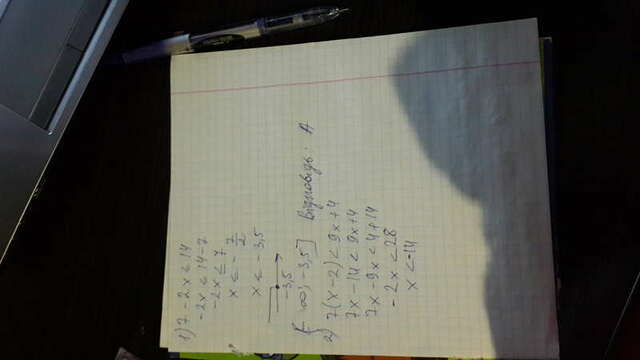 1) 7 - 2x ≤ 14
-2x ≤ 14-7
-2x ≤ 7
x ≤ - 7/2
x ≤ - 3,5
-3,5
[- ∞; -3,5] Відповідь: А
2) 7(x-2) < 9x+4
7x - 14 < 9x+4
7x - 9x < 4+14
- 2x < 28
x < -14